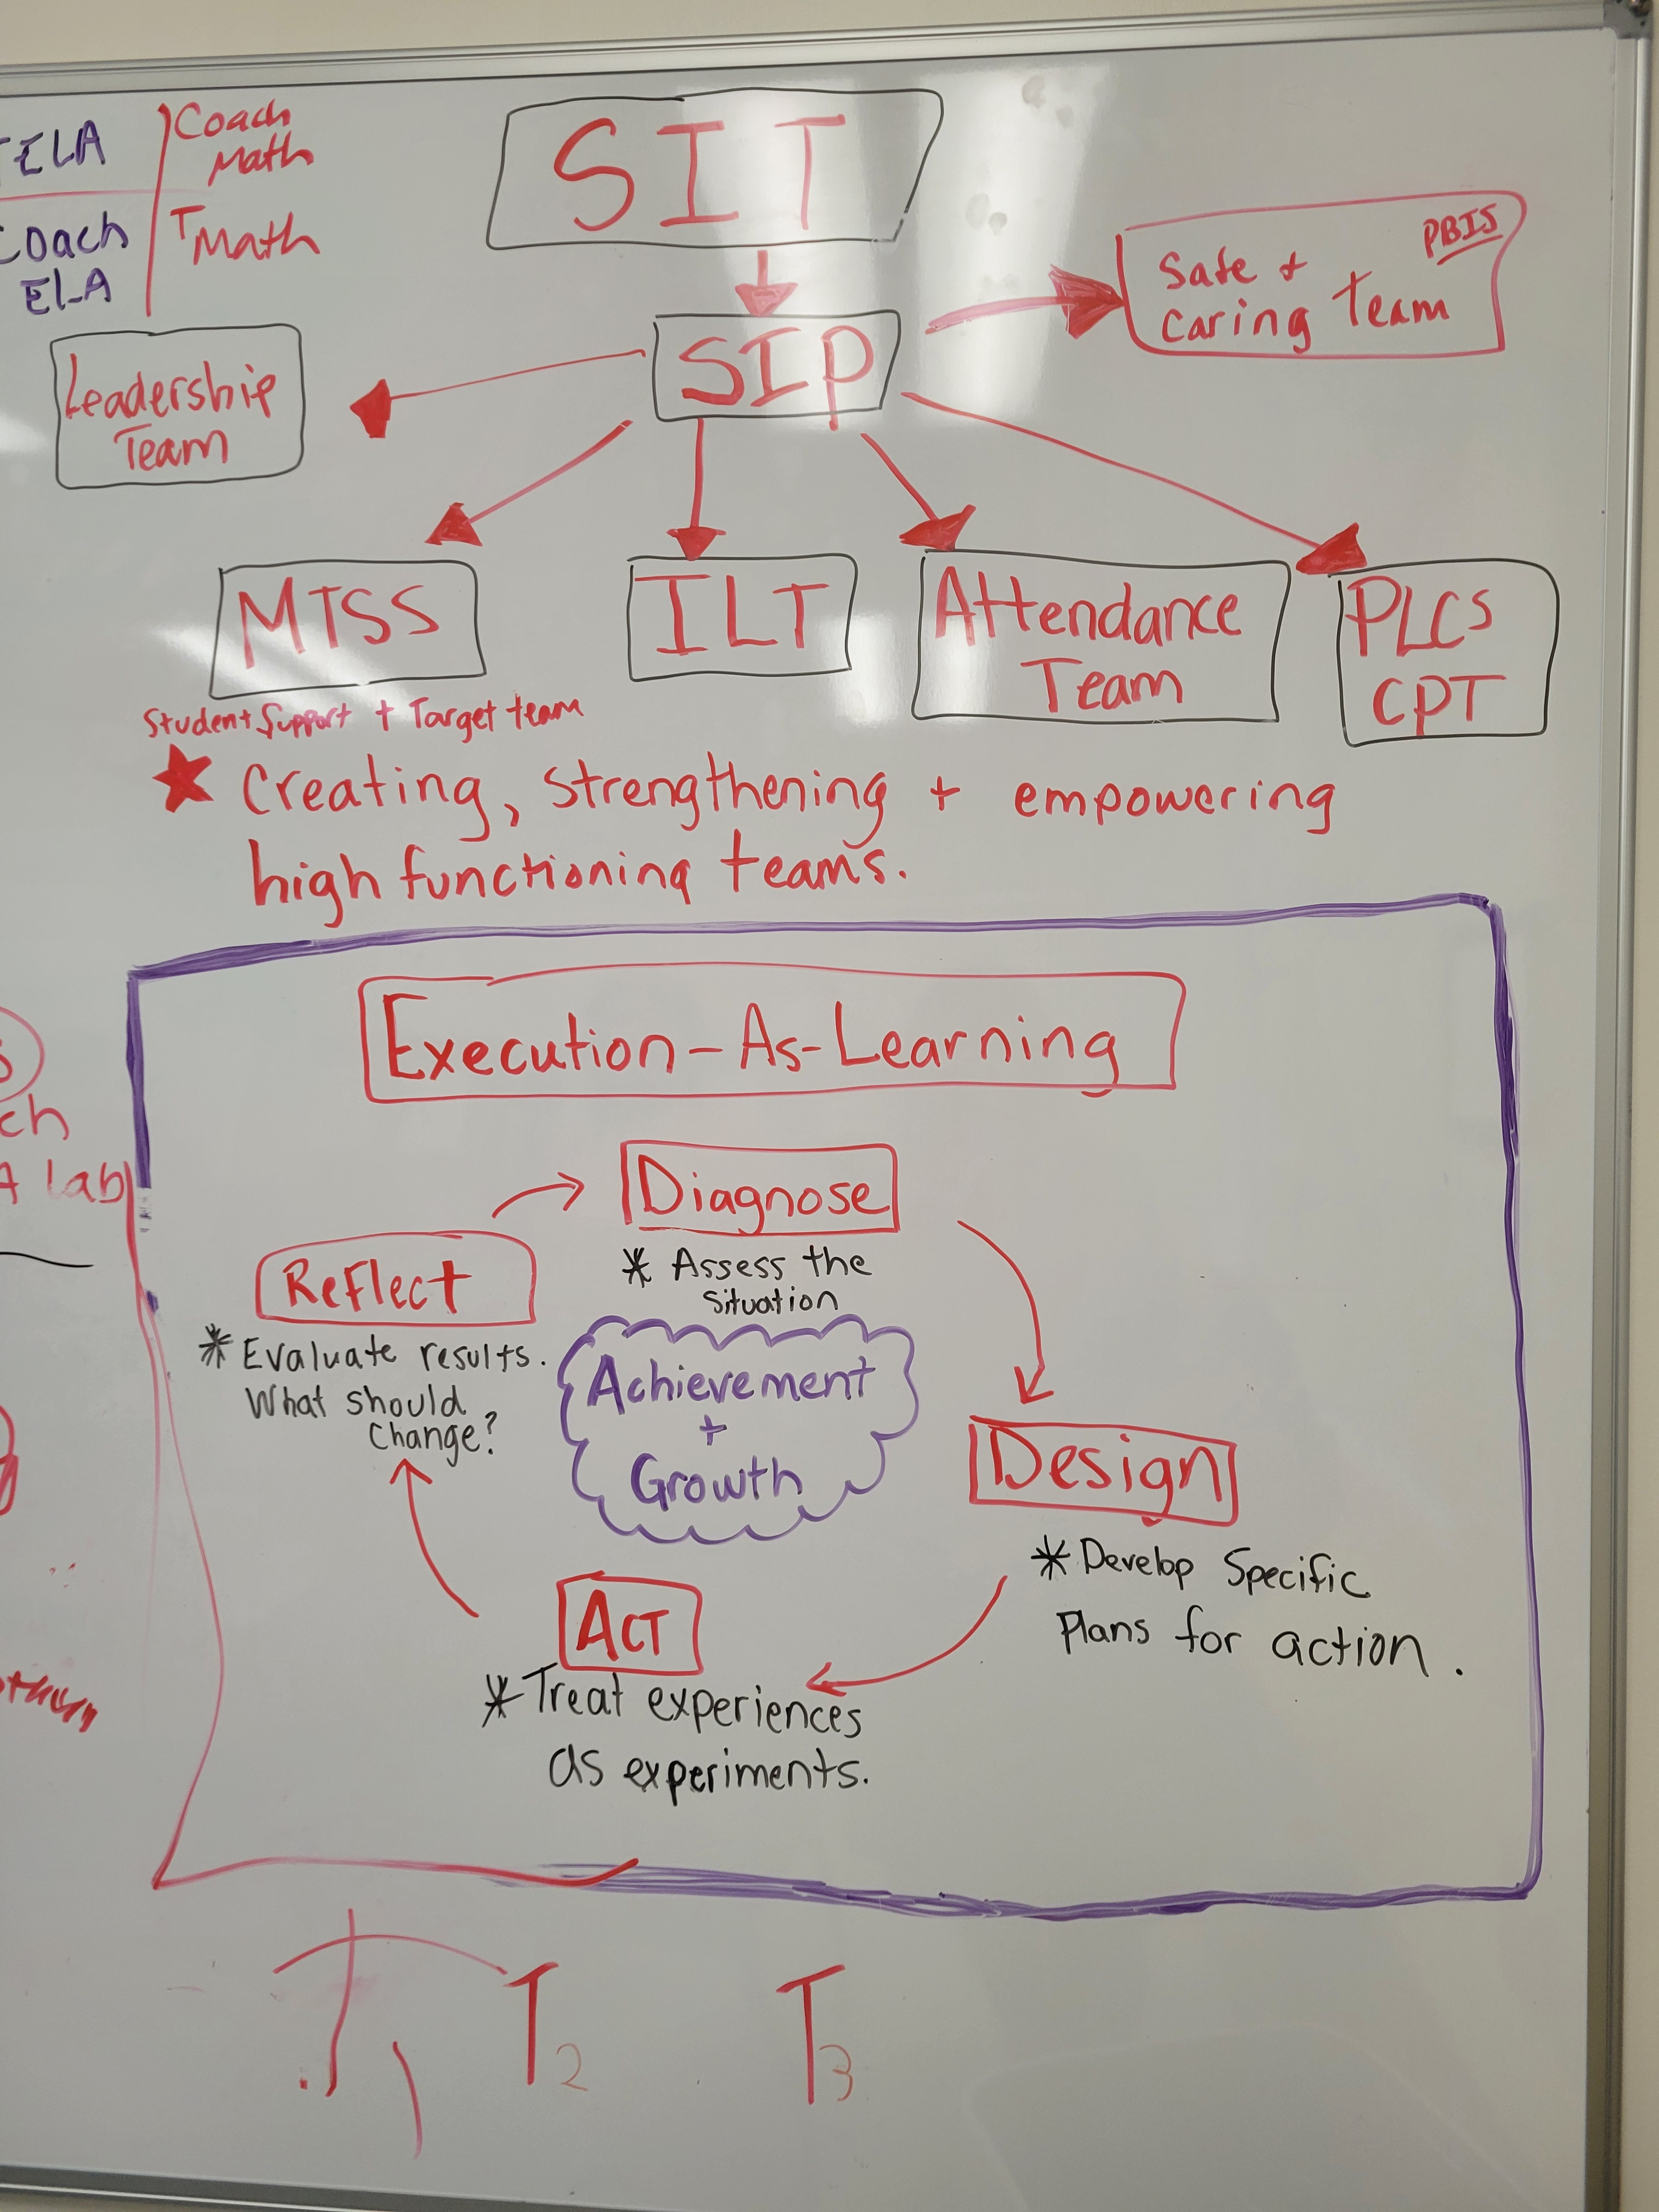 ELA
Coach
Math
Coach
ELA
T Math
SIT
PBIS
Safe +
Caring Team
SIP
Leadership
Team
MTSS
Student Support + Target team
ILT
Attendance
Team
PLCs
CPT
★ Creating, strengthening + empowering
high functioning teams.
Execution-As-Learning
Diagnose
* Assess the
situation
Reflect
* Evaluate results.
What should
Change?
Achievement
+
Growth
Design
* Develop Specific
Plans for action.
Act
* Treat experiences
as experiments.
ch
lab
T1
T2
T3